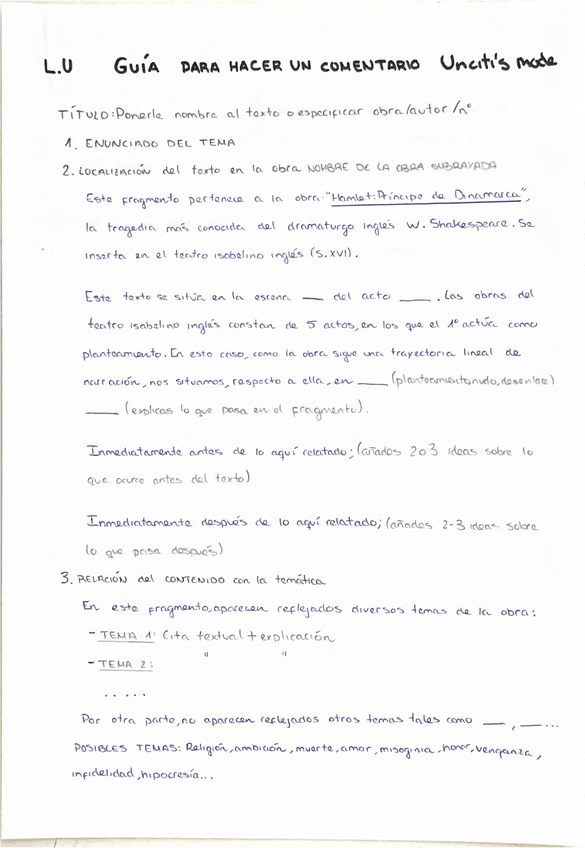 L.U GUÍA PARA HACER UN COMENTARIO Unciti's mode
TÍTULO: Ponerle nombre al texto o especificar obra/autor/nº
1. ENUNCIADO DEL TEMA
2. LOCALIZACIÓN del texto en la obra NOMBRE DE LA OBRA SUBRAYADA
Este fragmento pertenece a la obra "Hamlet: Príncipe de Dinamarca",
la tragedia más conocida del dramaturgo inglés W. Shakespeare. Se
inserta en el teatro isabelino inglés (S.XVI).
Este texto se sitúa en la escena ___ del acto ___. Las obras del
teatro isabelino inglés constan de 5 actos, en los que el 1º actúa como
planteamiento. En este caso, como la obra sigue una trayectoria lineal de
narración, nos situamos, respecto a ella, en ___ (planteamiento, nudo, desenlace)
___ (explicas lo que pasa en el fragmento).
Inmediatamente antes de lo aquí relatado; (añades 2 o 3 ideas sobre lo
que ocurre antes del texto)
Inmediatamente después de lo aquí relatado; (añades 2-3 ideas sobre
lo que pasa después)
3. RELACIÓN del CONTENIDO con la temática
En este fragmento, aparecen reflejados diversos temas de la obra:
- TEMA 1: Cita textual + explicación
- TEMA 2: " "
.....
Por otra parte, no aparecen reflejados otros temas tales como ___, ___...
POSIBLES TEMAS: Religión, ambición, muerte, amor, misoginia, honor, venganza,
infidelidad, hipocresía...